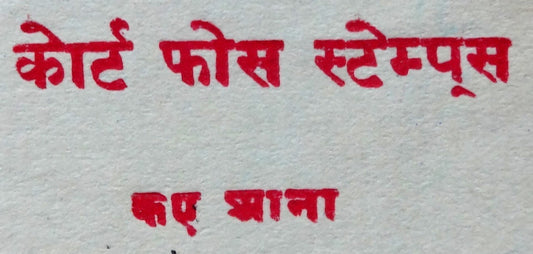 कोर्ट फोस स्टेम्प्स
कए आना